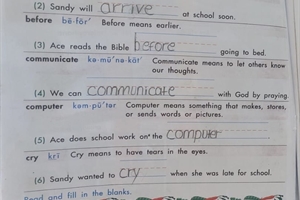 (2) Sandy will arrive at school soon.
before bē·fōr′ Before means earlier.
(3) Ace reads the Bible before going to bed.
communicate kə·mū′nə·kāt′ Communicate means to let others know
our thoughts.
(4) We can communicate with God by praying.
computer kəm·pū′tər Computer means something that makes, stores,
or sends words or pictures.
(5) Ace does school work on the computer
cry krī Cry means to have tears in the eyes.
(6) Sandy wanted to cry when she was late for school.
Read and fill in the blanks.